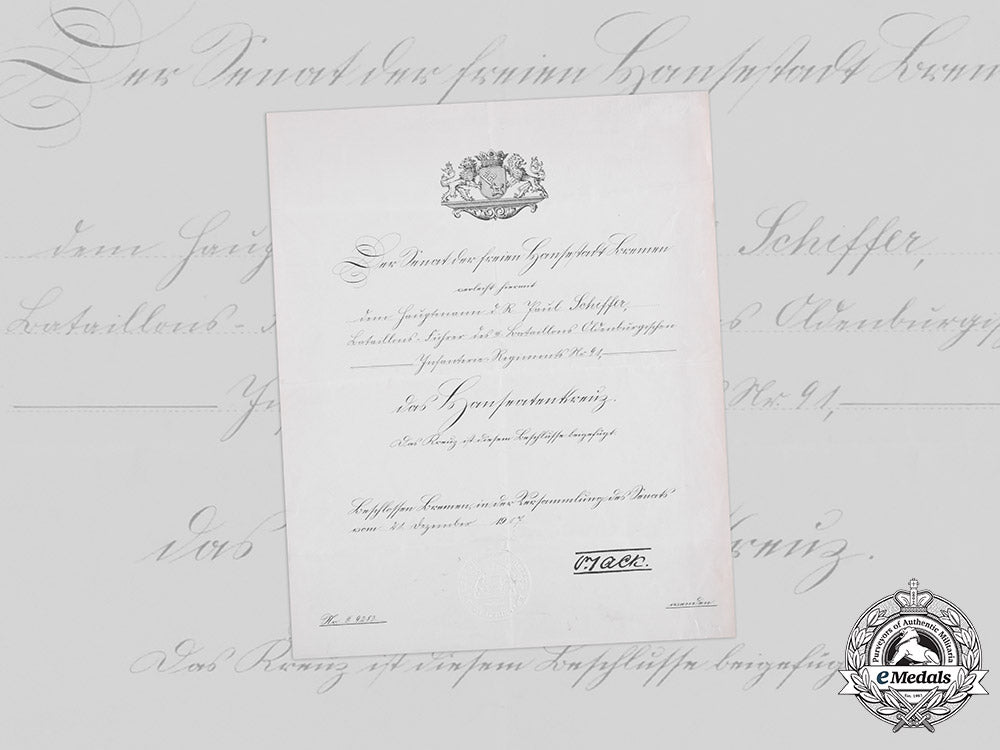 Der Senat der freien Hansestadt Bremen
verleiht hiermit
dem Hauptmann d. R. Paul Schiffer,
Bataillons-Führer des Bataillons Oldenburgischen
Infanterie Regiments Nr. 91,
das Hanseatenkreuz.
Das Kreuz ist diesem Beschlusse beigefügt.
Beschlossen Bremen, in der Versammlung des Senats
vom 21. Dezember 1917.
wenden
Purveyors of Authentic Militaria
eMedals